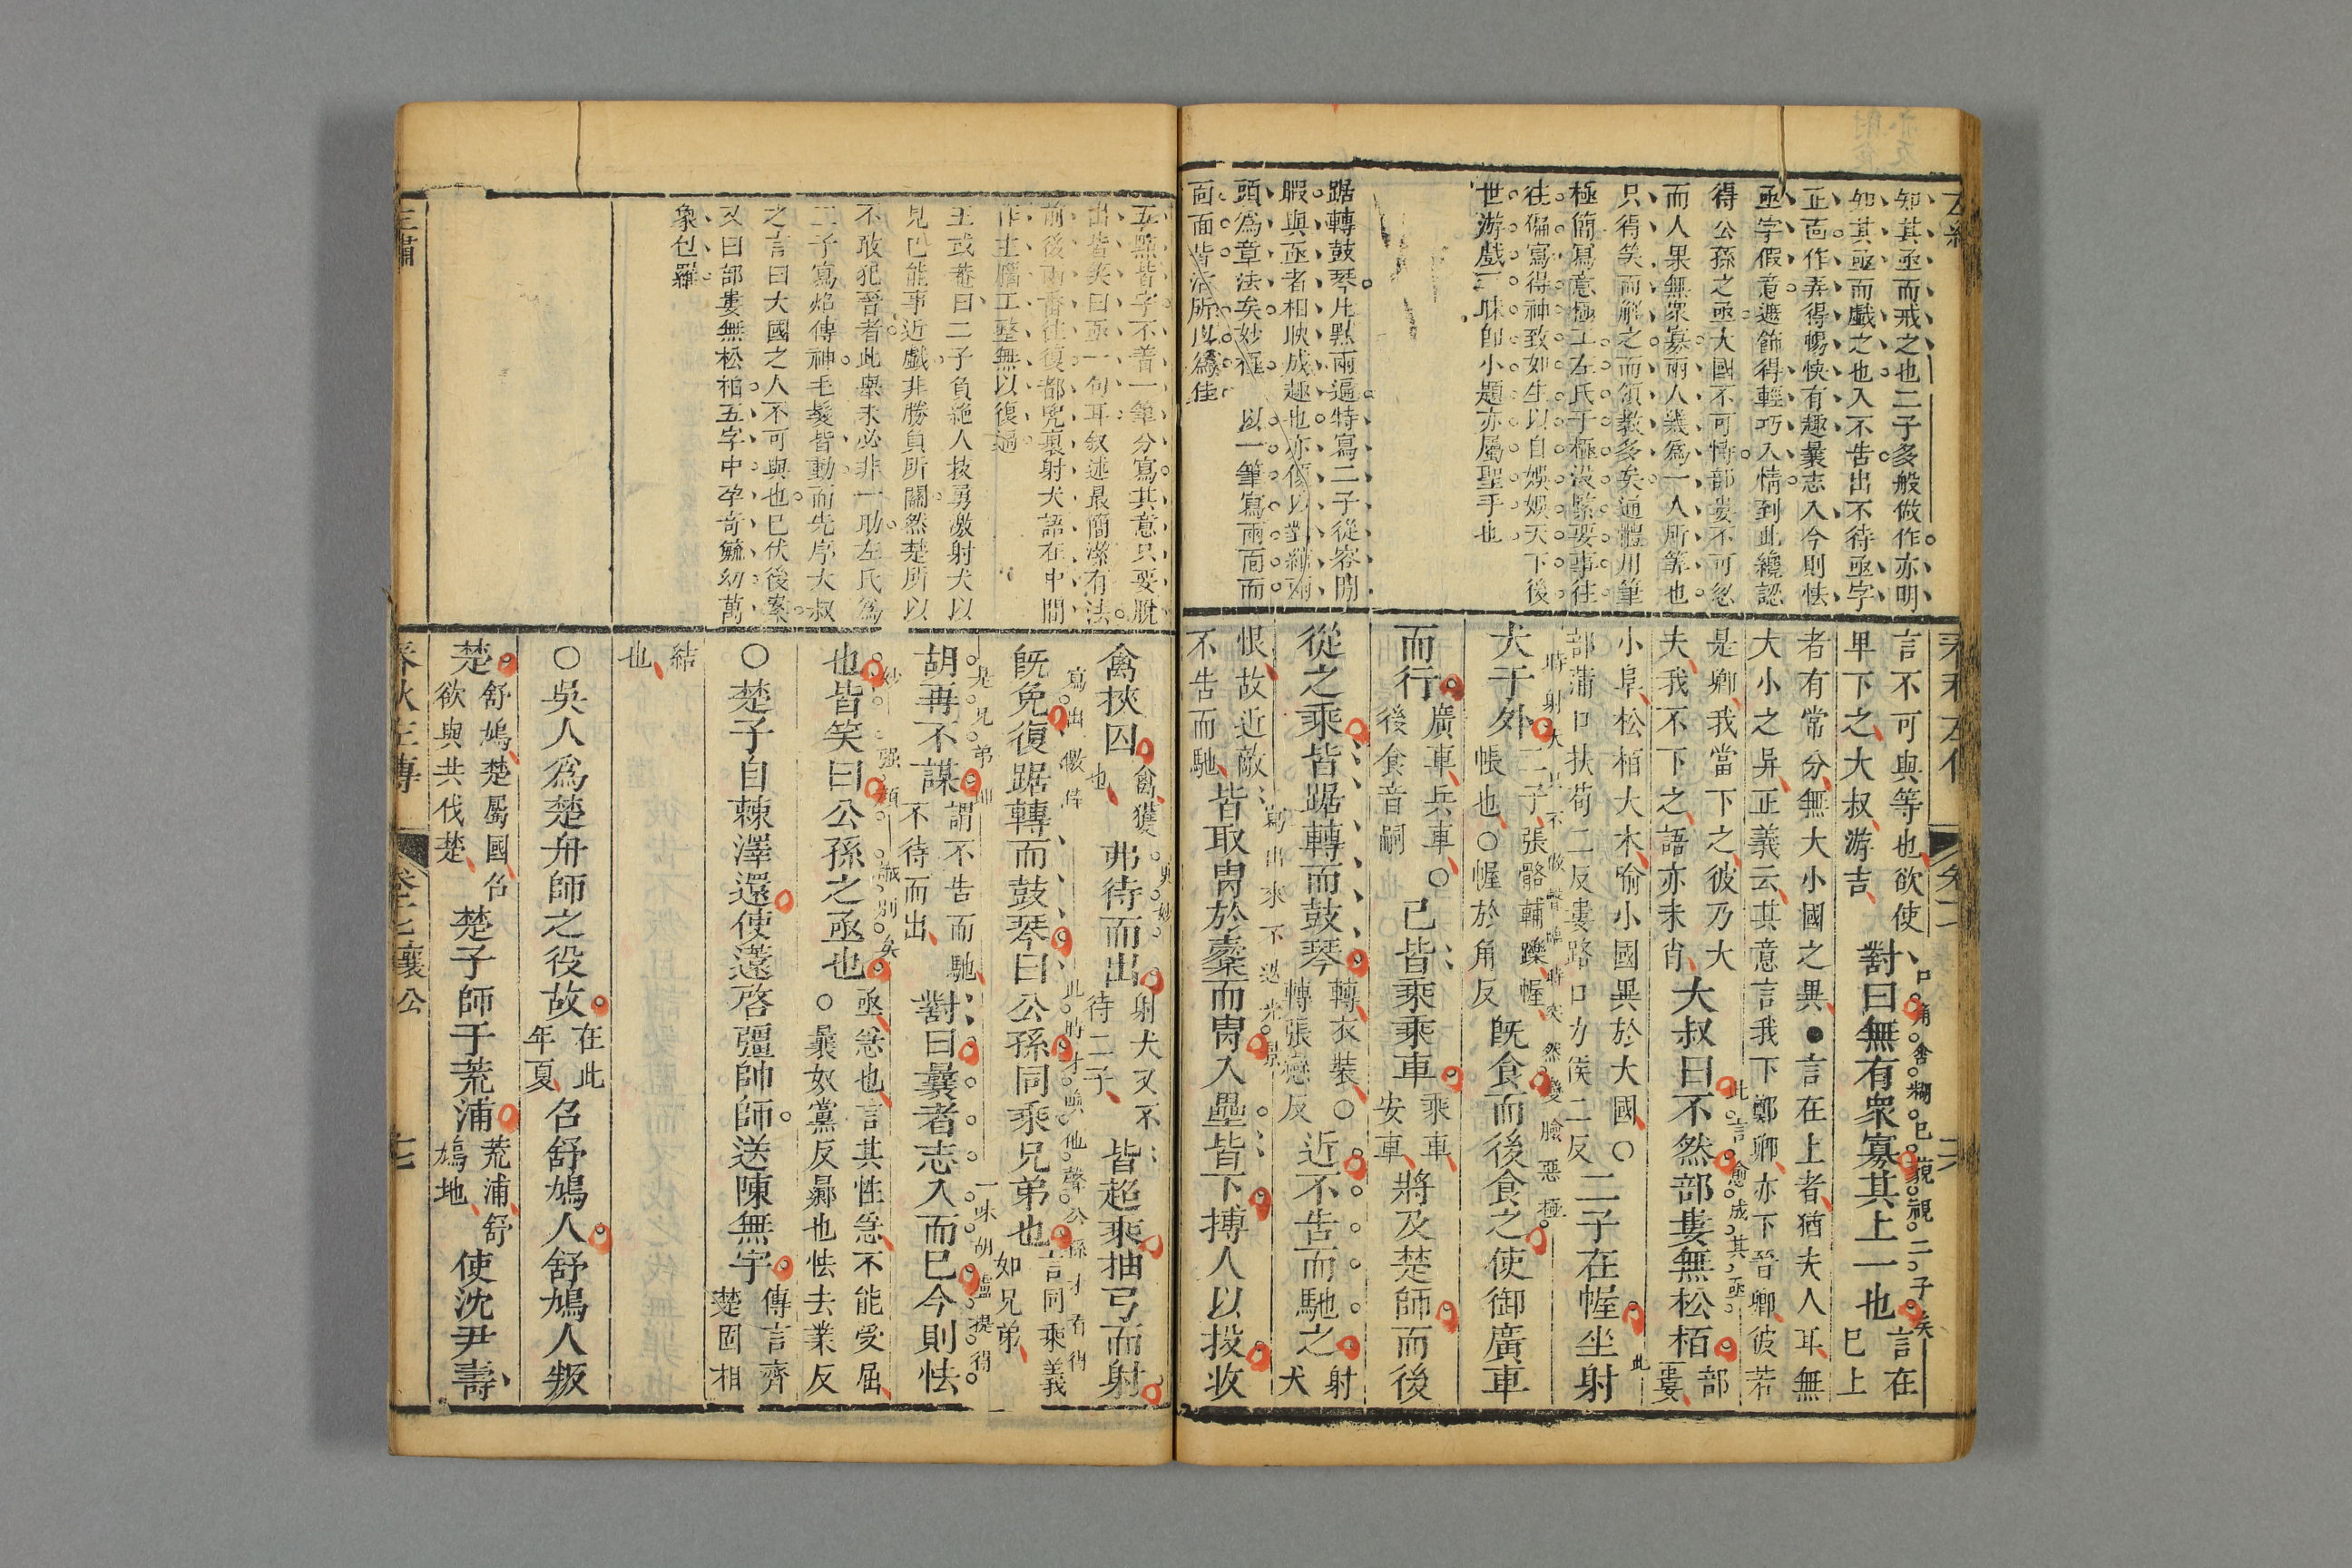 知其亟而戒之也二子多般做作亦明
知其亟而戲之也入不告出不待亟字
正面作弄得暢快有趣曩志入今則怯
亟字假意遮飾得輕巧入情到此纔認
得公孫之亟大國不可恃部婁不可忽
而人果無眾寡兩人幾為一人所笑也
只得笑而解之而領教多矣通體用筆
極簡寫意極工左氏于極沒緊要事往
往偏寫得神致如生以自娛娛天下後
世游戲三昧即小題亦屬聖手也
踞轉鼓琴片點兩遍特寫二子從容閒
暇與亟者相映成趣也亦便以對縮兩
頭為章法矣妙極 以一筆寫兩面而
面面皆活所以為佳
言不可與等也欲使
卑下之大叔游吉
對曰無有衆寡其上一也
言在
巳上
者有常分無大小國之異●言在上者猶夫人耳無
大小之异正義云其意言我下鄭卿亦下晉卿彼若
是卿我當下之彼乃大
夫我不下之語亦未肖
大叔曰不然部婁無松柏
部
婁
小阜松柏大木喻小國異於大國○
部蒲口扶苟二反婁路口力侯二反
二子在幄坐射
犬于外
二子張骼輔躒幄
帳也○幄於角反
既食而後食之使御廣車
而行
廣車兵車○
後食音嗣
己皆乘乘車
乘車
安車
將及楚師而後
從之乘皆踞轉而鼓琴
轉衣裝○
轉張戀反
近不告而馳之
射
犬
恨故近敵
不告而馳
皆取胄於櫜而胄入壘皆下搏人以投收
五點皆字不著一筆分寫其意只要脫
出皆笑曰亟一句耳叙述最簡潔有法
前後兩番往復都兜裹射犬語在中間
作主腦工整無以復過
王或菴曰二子負絶人技勇激射犬以
見己能事近戲非勝負所關然楚所以
不敢犯晉者此舉未必非一助左氏為
二子寫焰傳神毛髮皆動而先序大叔
之言曰大國之人不可與也已伏後案
又曰部婁無松柏五字中孕奇毓幻萬
象包羅
禽挾囚
禽獲
也
弗待而出
射犬又不
待二子
皆超乘抽弓而射
既免復踞轉而鼓琴曰公孫同乘兄弟也
言同乘義
如兄弟
胡再不謀
謂不告而馳
不待而出
對曰曩者志入而已今則怯
也皆笑曰公孫之亟也
亟急也言其性急不能受屈
○曩奴黨反曏也怯去業反
○楚子自棘澤還使薳啓彊帥師送陳無宇
傳言齊
楚固相
結
也
○吳人為楚舟師之役故
在此
年夏
召舒鳩人舒鳩人叛
楚
舒鳩楚屬國召
欲與共伐楚
楚子師于荒浦
荒浦舒
鳩地
使沈尹壽
春秋左傳
卷十七襄公